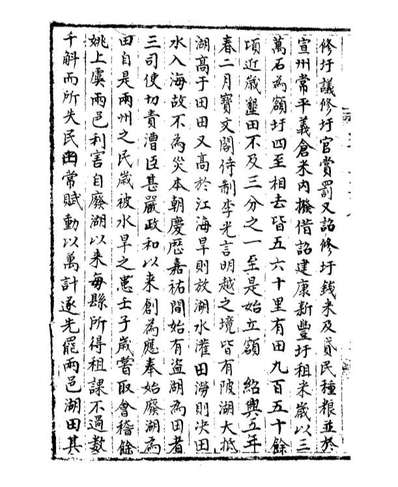 修圩議修圩官賞罰又詔修圩錢米及貧民種粮並於
宣州常平義倉米內撥借詔建康新豐圩租米歲以三
萬石為額圩四至相去皆五六十里有田九百五十餘
頃近歲墾田不及三分之一至是始立額 紹興五年
春二月寶文閣待制李光言明越之境皆有陂湖大抵
湖高于田田又高於江海旱則放湖水灌田澇則決田
水入海故不為災本朝慶歷嘉祐間始有盜湖為田者
三司使切責漕臣甚嚴政和以來創為應奉始廢湖為
田自是兩州之民歲被水旱之患壬子歲嘗取會稽餘
姚上虞兩邑利害自廢湖以來每縣所得租課不過數
千斛而所失民田常賦動以萬計遂先罷兩邑湖田其